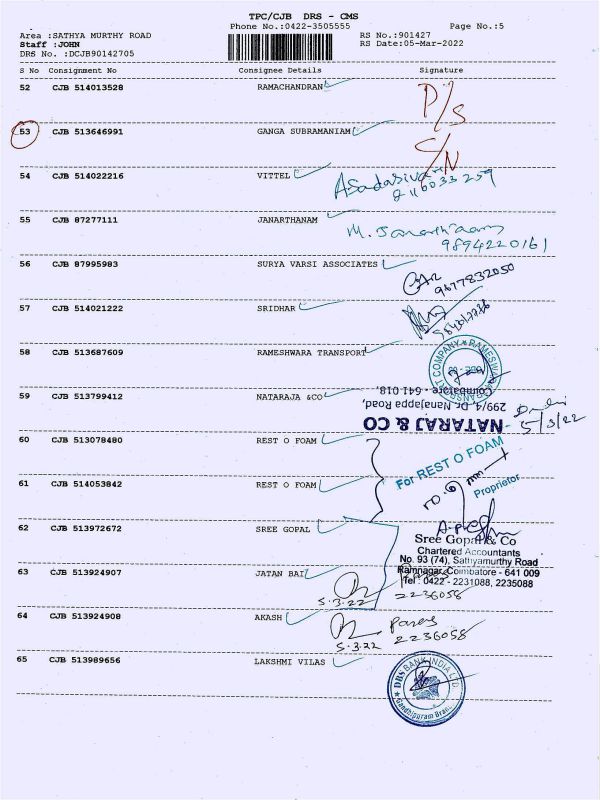 TPC/CJB DRS - CMS
Phone No.:0422-3505555
Page No.:5
Area :SATHYA MURTHY ROAD
RS No.:901427
Staff :JOHN
RS Date:05-Mar-2022
DRS No. :DCJB90142705
S No Consignment No Consignee Details Signature
52 CJB 514013528 RAMACHANDRAN
P/S
53 CJB 513646991 GANGA SUBRAMANIAM
S/N
54 CJB 514022216 VITTEL
Asadasiva
8116033259
55 CJB 87277111 JANARTHANAM
M. Janarthanam
9894220161
56 CJB 87995983 SURYA VARSI ASSOCIATES
9677832050
57 CJB 514021222 SRIDHAR
58 CJB 513687609 RAMESHWARA TRANSPORT
59 CJB 513799412 NATARAJA &CO
NATARAJ & CO
299/4, Dr. Nanjappa Road,
Coimbatore - 641 018.
5/3/22
60 CJB 513078480 REST O FOAM
For REST O FOAM
Proprietor
61 CJB 514053842 REST O FOAM
62 CJB 513972672 SREE GOPAL
Sree Gopal & Co
Chartered Accountants
No. 93 (74), Sathyamurthy Road
Ramnagar, Coimbatore - 641 009
Tel : 0422 - 2231088, 2235088
63 CJB 513924907 JATAN BAI
5.3.22 2236058
64 CJB 513924908 AKASH
5.3.22 Paras 2236058
65 CJB 513989656 LAKSHMI VILAS
DBS BANK INDIA LTD.
Gandhipuram Branch